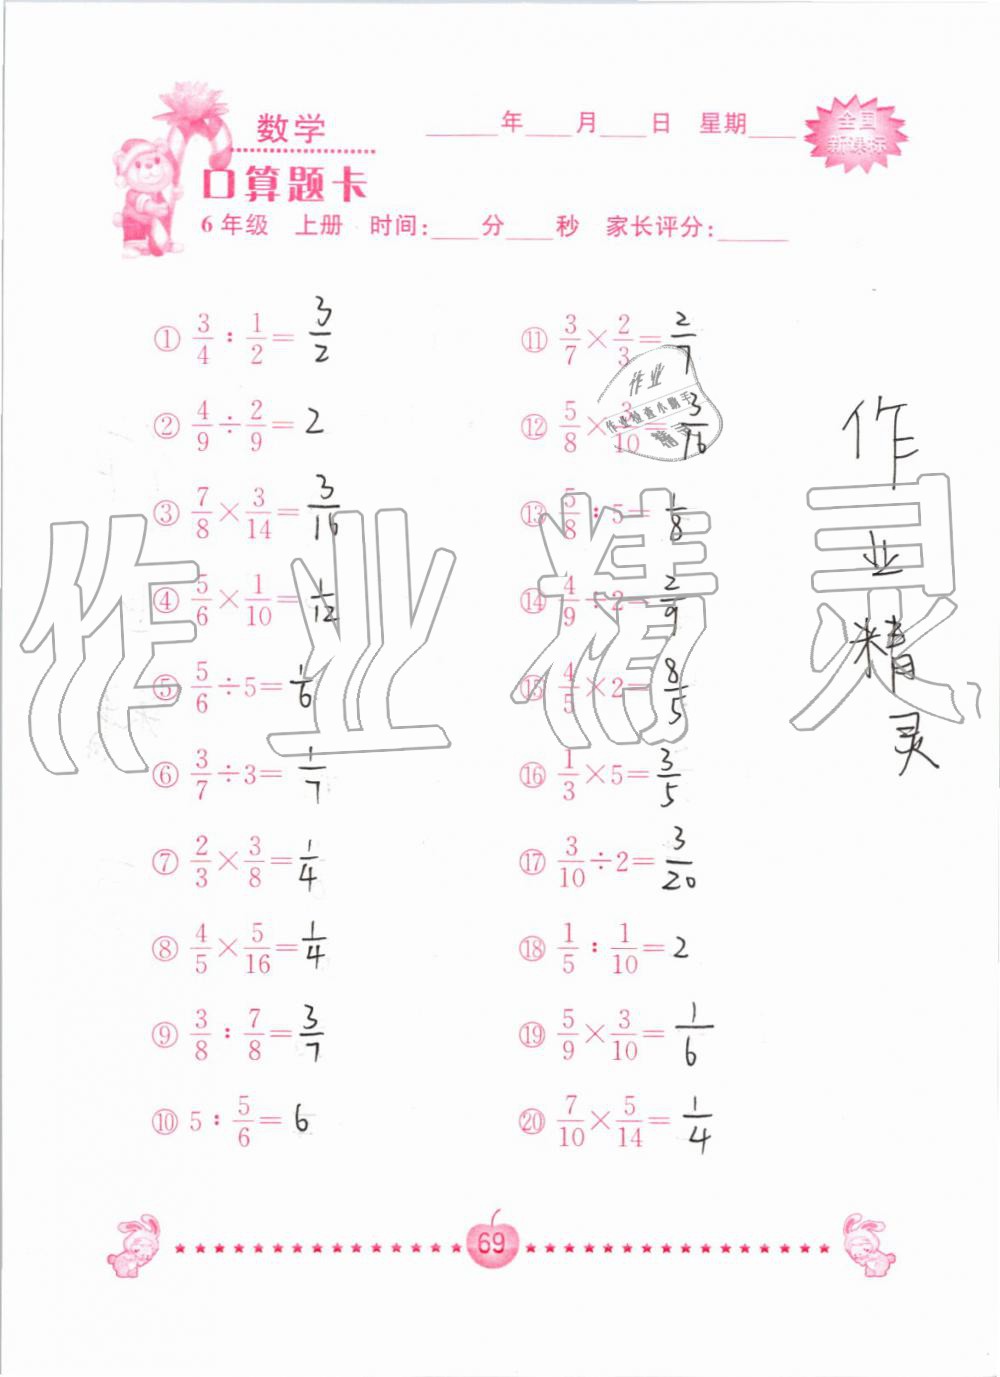 数学
____年____月____日 星期____
全国
新课标
口算题卡
6年级 上册 时间:____分____秒 家长评分:____
① 3/4 : 1/2 = 3/2
② 4/9 ÷ 2/9 = 2
③ 7/8 × 3/14 = 3/16
④ 5/6 × 1/10 = 1/12
⑤ 5/6 ÷ 5 = 1/6
⑥ 3/7 ÷ 3 = 1/7
⑦ 2/3 × 3/8 = 1/4
⑧ 4/5 × 5/16 = 1/4
⑨ 3/8 : 7/8 = 3/7
⑩ 5 : 5/6 = 6
⑪ 3/7 × 2/3 = 2/7
⑫ 5/8 × 3/10 = 3/16
⑬ 5/8 : 5 = 1/8
⑭ 4/9 ÷ 2 = 2/9
⑮ 4/5 × 2 = 8/5
⑯ 1/3 × 5 = 3/5
⑰ 3/10 ÷ 2 = 3/20
⑱ 1/5 : 1/10 = 2
⑲ 5/9 × 3/10 = 1/6
⑳ 7/10 × 5/14 = 1/4
作业
作业检查小助手
精灵
作业精灵
作
业
精
灵
69